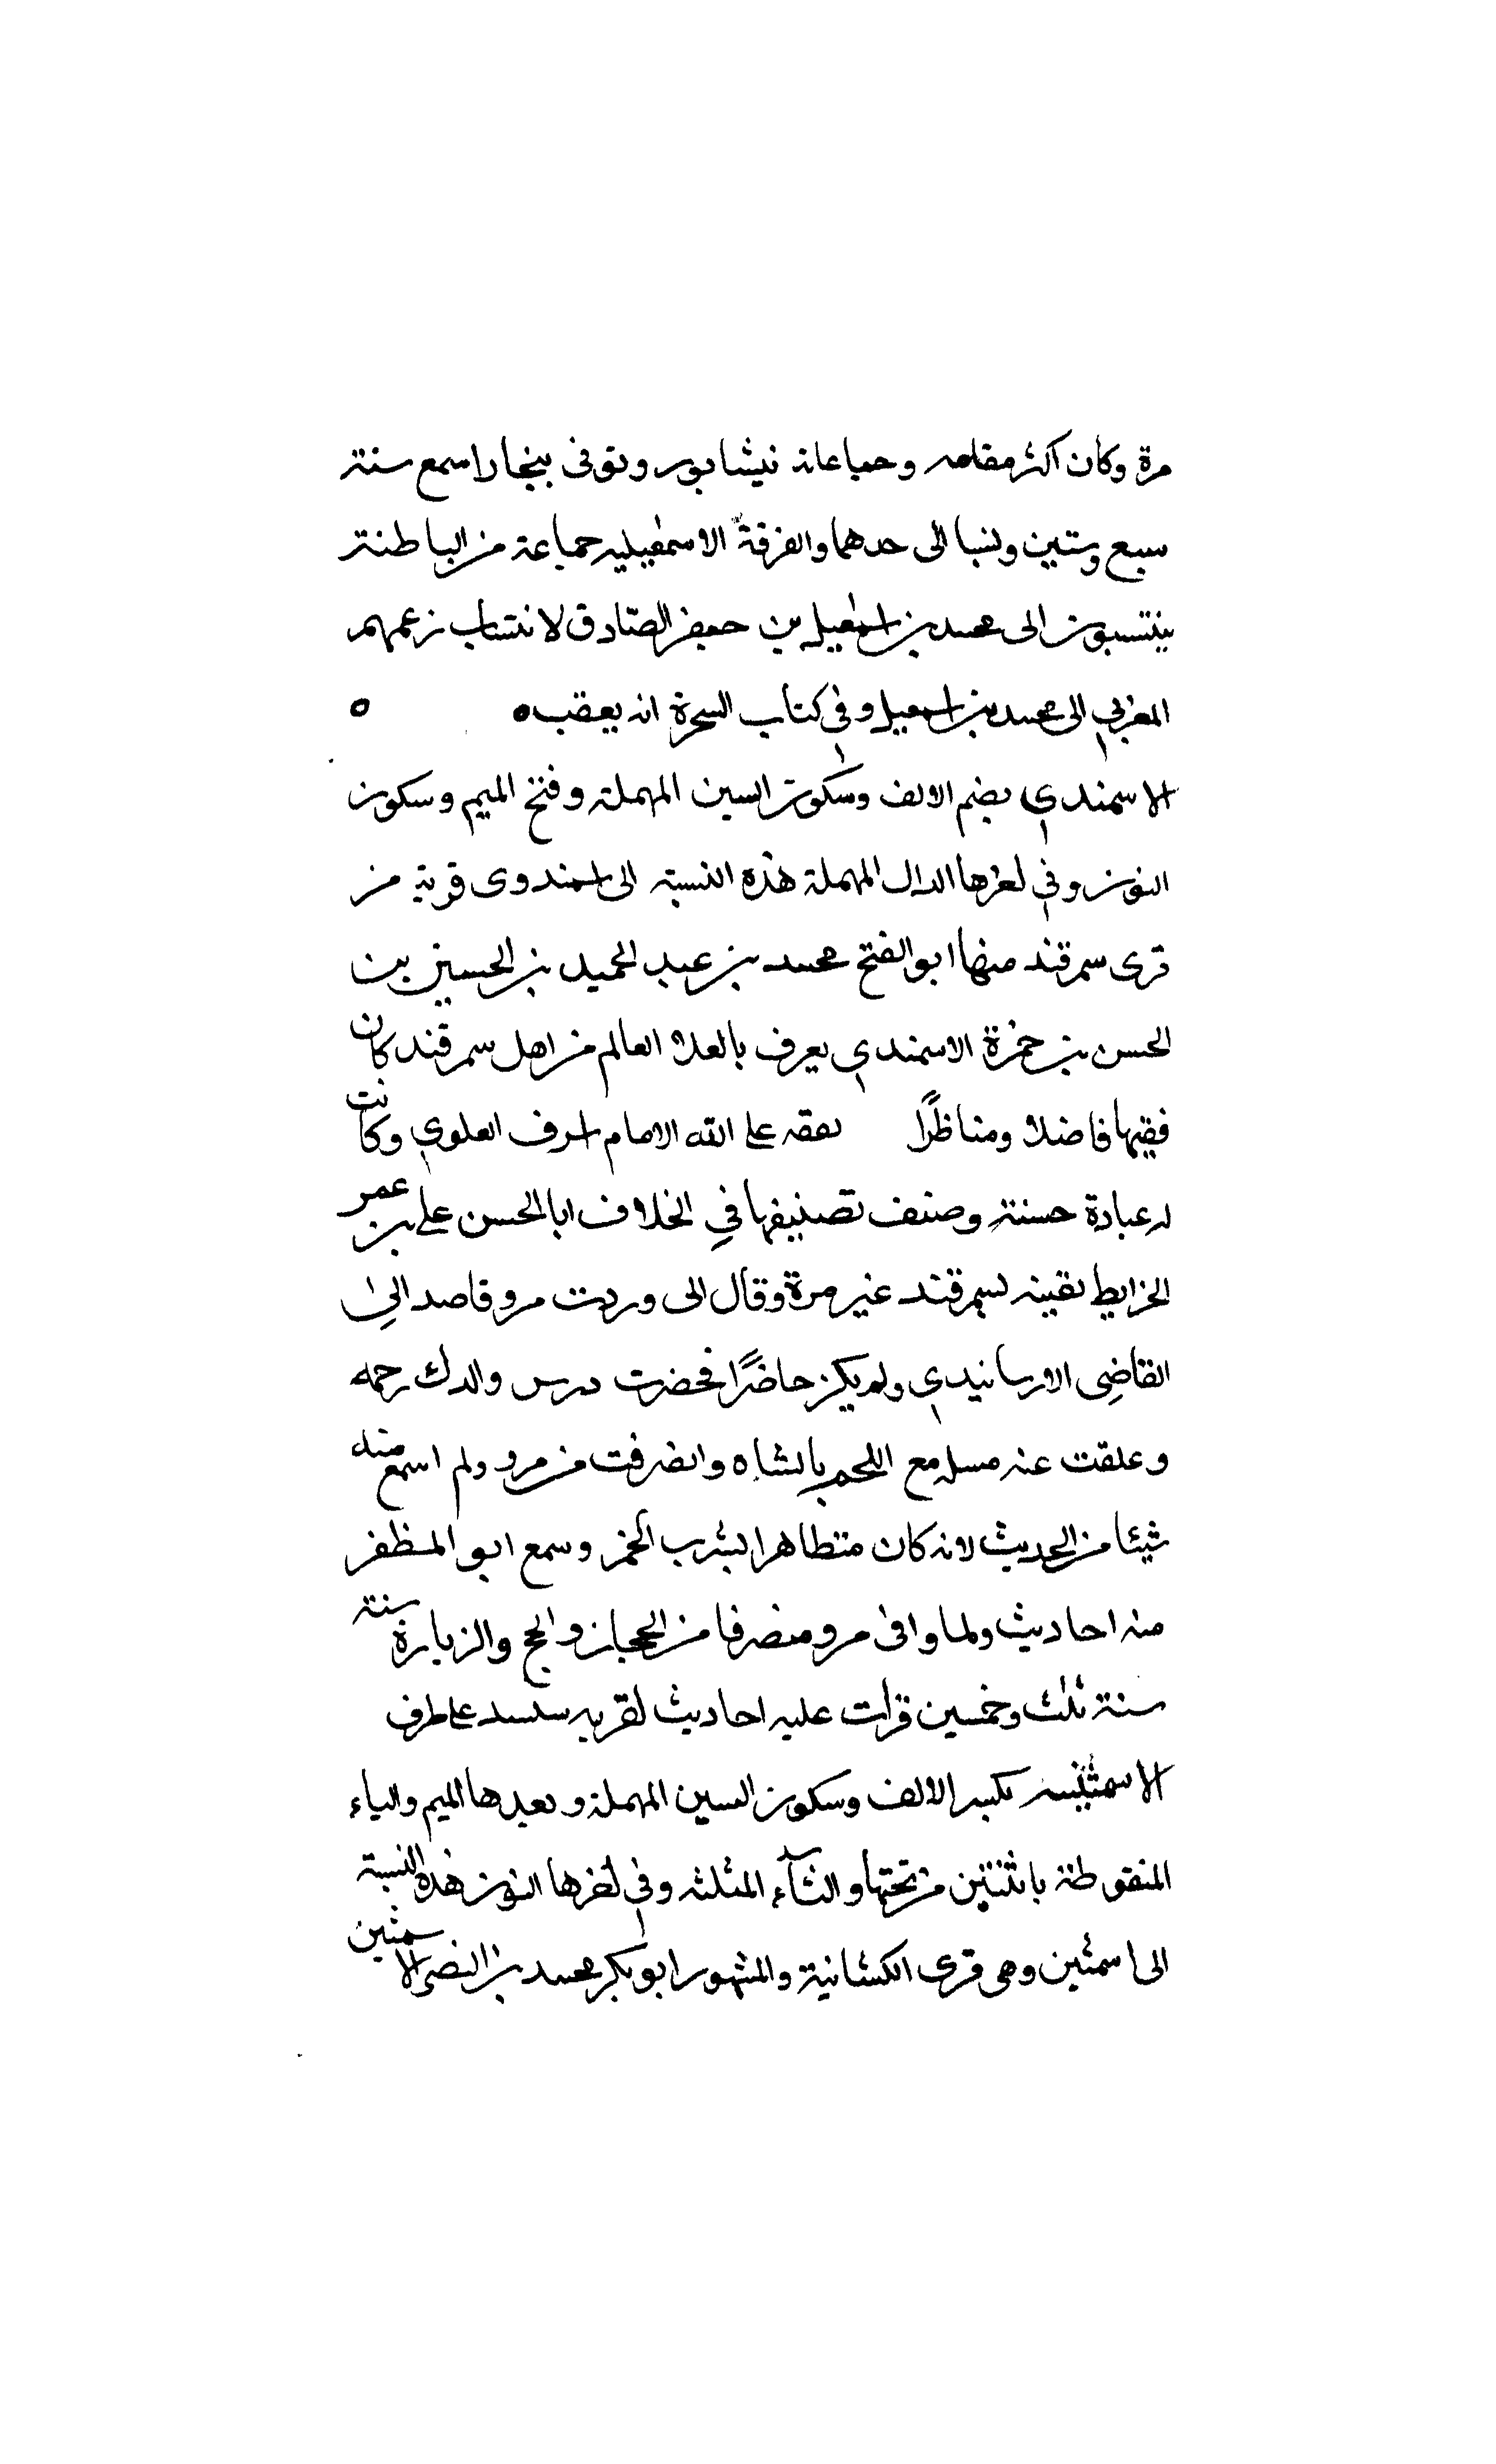 مرة وكان اكثر مقامه وحماعاته نيشابور وتوفى ببخارا سمع سنة
سبع وستين ونسبا الى حدهما والفرقة الاسمعيلية جماعة من الباطنة
ينتسبون الى محمد بن اسمعيل بن جعفر الصادق لانتساب زعمهم
المغربي الى محمد بن اسمعيل وفي كتاب السحرة انه يعقب ه ه
الاسمندي بضم الالف وسكون السين المهملة وفتح الميم وسكون
النون وفي اخرها الدال المهملة هذه النسبة الى اسمندوى قرية من
قرى سمرقند منها ابو الفتح محمد بن عبد الحميد بن الحسين بن
الحسن بن حمزة الاسمندي يعرف بالعلا العالم من اهل سمرقند كان
فقيها فاضلا ومناظرًا تفقه على الامام اشرف العلوي وكانت
له عبادة حسنة وصنف تصنيفها في الخلاف ابا الحسن علي بن عمر
الخرايط لقيته بسمرقند غير مرة وقال الى وردت مرو قاصد الى
القاضي الارسانيدي ولم يكن حاضرًا فحضرت درس والدك رحمه
وعلقت عنه مسله مع اللحم بالشاه وانصرفت من مرو ولم اسمع منه
شيئا من الحديث لانه كان متظاهرا بشرب الخمر وسمع ابو المظفر
منه احاديث ولما وافى مرو منصرفا من الحجاز والحج والزيارة سنة
سنة ثلث وخمسين قرات عليه احاديث لقريه على طرف
الاسمثينى بكسر الالف وسكون السين المهملة وبعدها الميم والياء
المنقوطة باثنتين من تحتها والثاء المثلثه وفي اخرها النون هذه النسبة
الى اسمثين وهى قرى الكشانية والمشهور ابو بكر محمد بن النضر الاسمثين